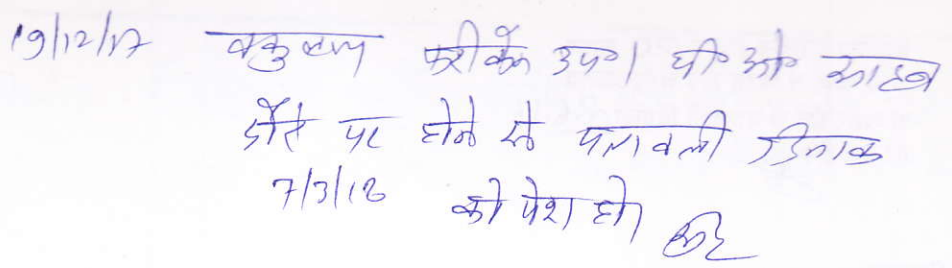 19/12/17 वकुलाय फरीकेन उप०। पी० ओ० साहब
दौरे पर होने से पत्रावली दिनांक
7/3/18 को पेश हो।